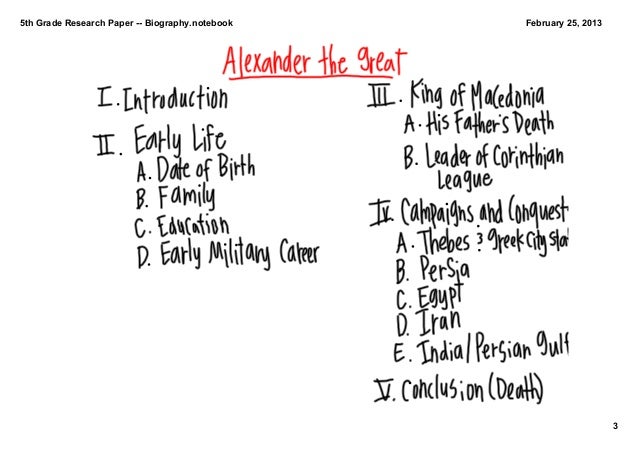 5th Grade Research Paper -- Biography.notebook
February 25, 2013
Alexander the great
I. Introduction
II. Early Life
A. Date of Birth
B. Family
C. Education
D. Early Military Career
III. King of Macedonia
A. His Father's Death
B. Leader of Corinthian
League
IV. Campaigns and Conquest
A. Thebes & greek City Stat
B. Persia
C. Egypt
D. Iran
E. India/Persian gulf
V. Conclusion (Death)
3